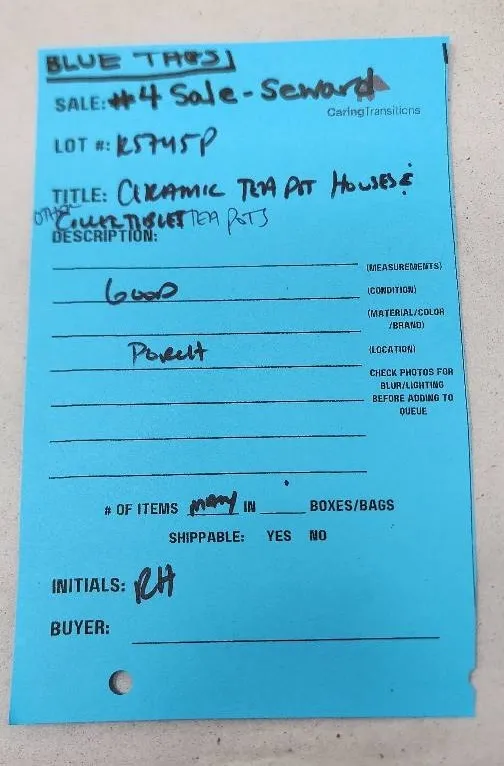 BLUE TAGS!
SALE: #4 Sale - Seward
CaringTransitions
LOT #: R5745P
TITLE: CERAMIC TEA POT HOUSES &
OTHER COLLECTIBLE TEA POTS
DESCRIPTION:
(MEASUREMENTS)
GOOD (CONDITION)
(MATERIAL/COLOR
/BRAND)
PORCH (LOCATION)
CHECK PHOTOS FOR
BLUR/LIGHTING
BEFORE ADDING TO
QUEUE
# OF ITEMS many IN BOXES/BAGS
SHIPPABLE: YES NO
INITIALS: RH
BUYER: